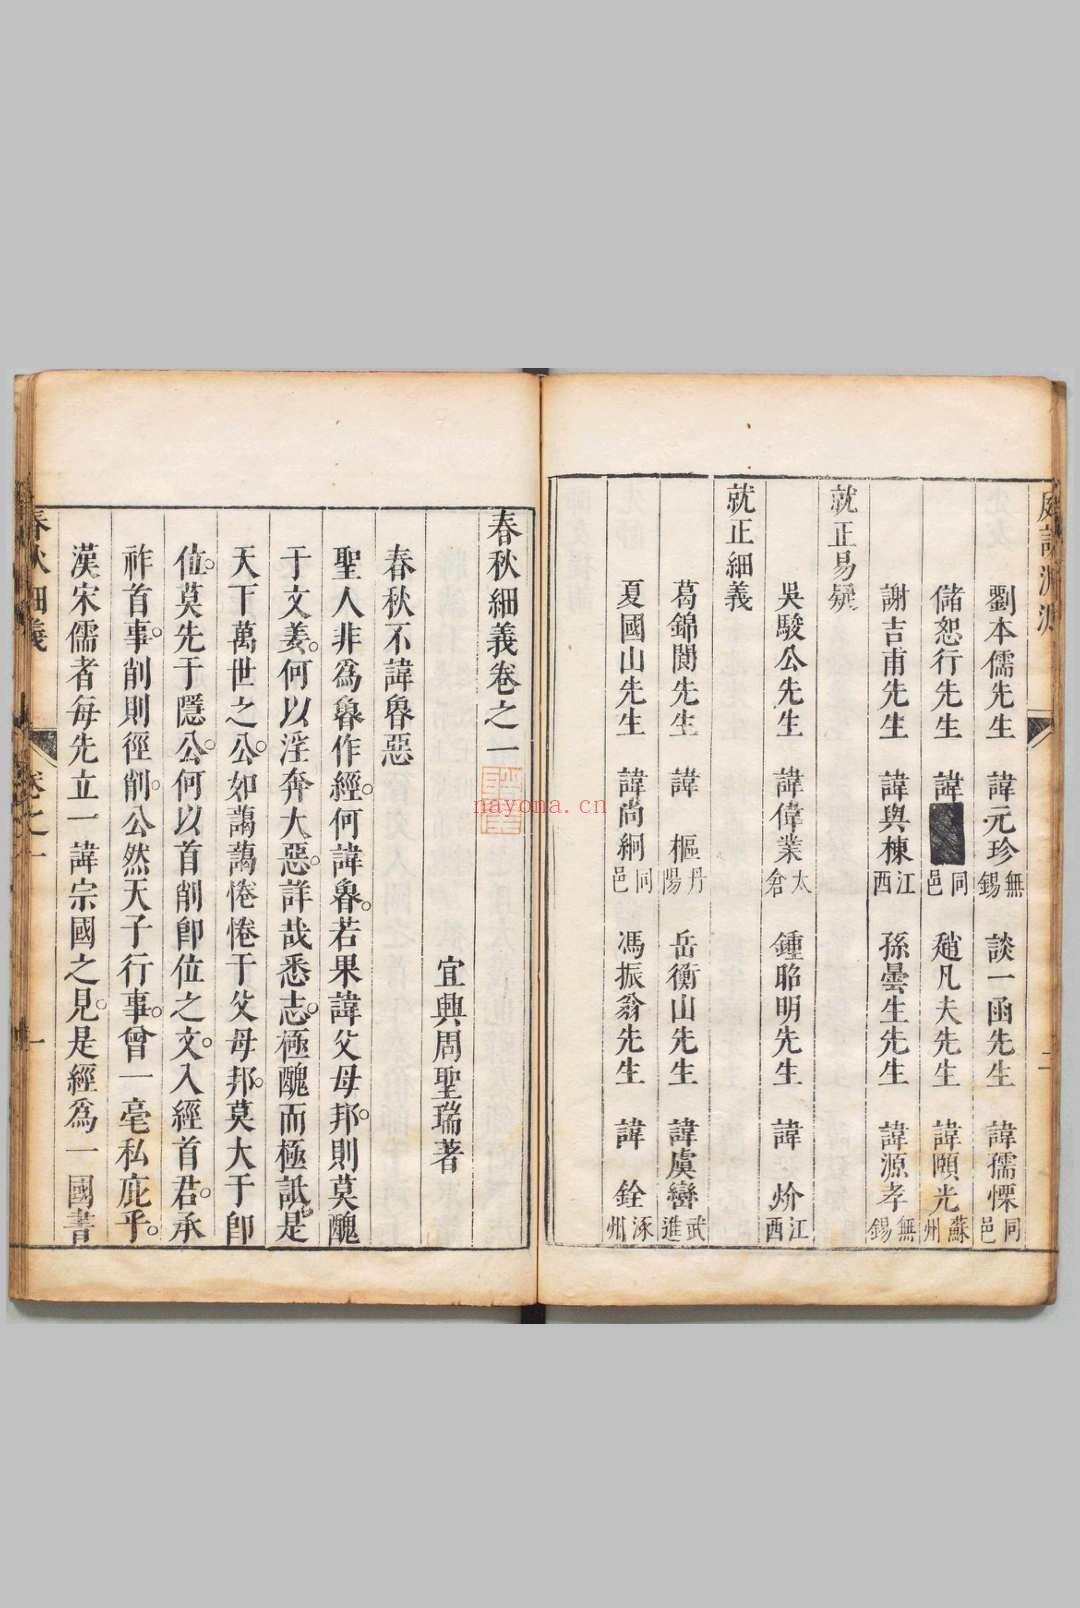 劉本儒先生　諱元珍無錫　談一函先生　諱孺慄同邑
儲恕行先生　諱　同邑　趙凡夫先生　諱頤光蘇州
謝吉甫先生　諱與棟江西　孫曇生先生　諱源孝無錫
就正易疑
吳駿公先生　諱偉業太倉　鍾昭明先生　諱炌江西
就正細義
葛錦閬先生　諱樞丹陽　岳衡山先生　諱虞巒武進
夏國山先生　諱尚絅同邑　馮振翁先生　諱銓涿州
春秋細義卷之一
宜興周聖瑞著
春秋不諱魯惡
聖人非爲魯作經何諱魯若果諱父母邦則莫醜
于文姜何以淫奔大惡詳哉悉志極醜而極詆是
天下萬世之公如藹藹惓惓于父母邦莫大于卽
位莫先于隱公何以首削卽位之文入經首君承
祚首事削則徑削公然天子行事曾一毫私庇乎
漢宋儒者每先立一諱宗國之見是經爲一國書
春秋細義
卷之一
一
nayona.cn